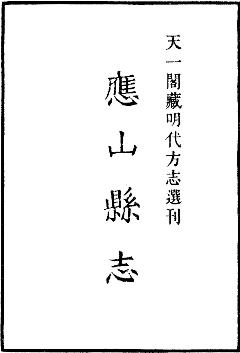 天一閣藏明代方志選刊
應山縣志